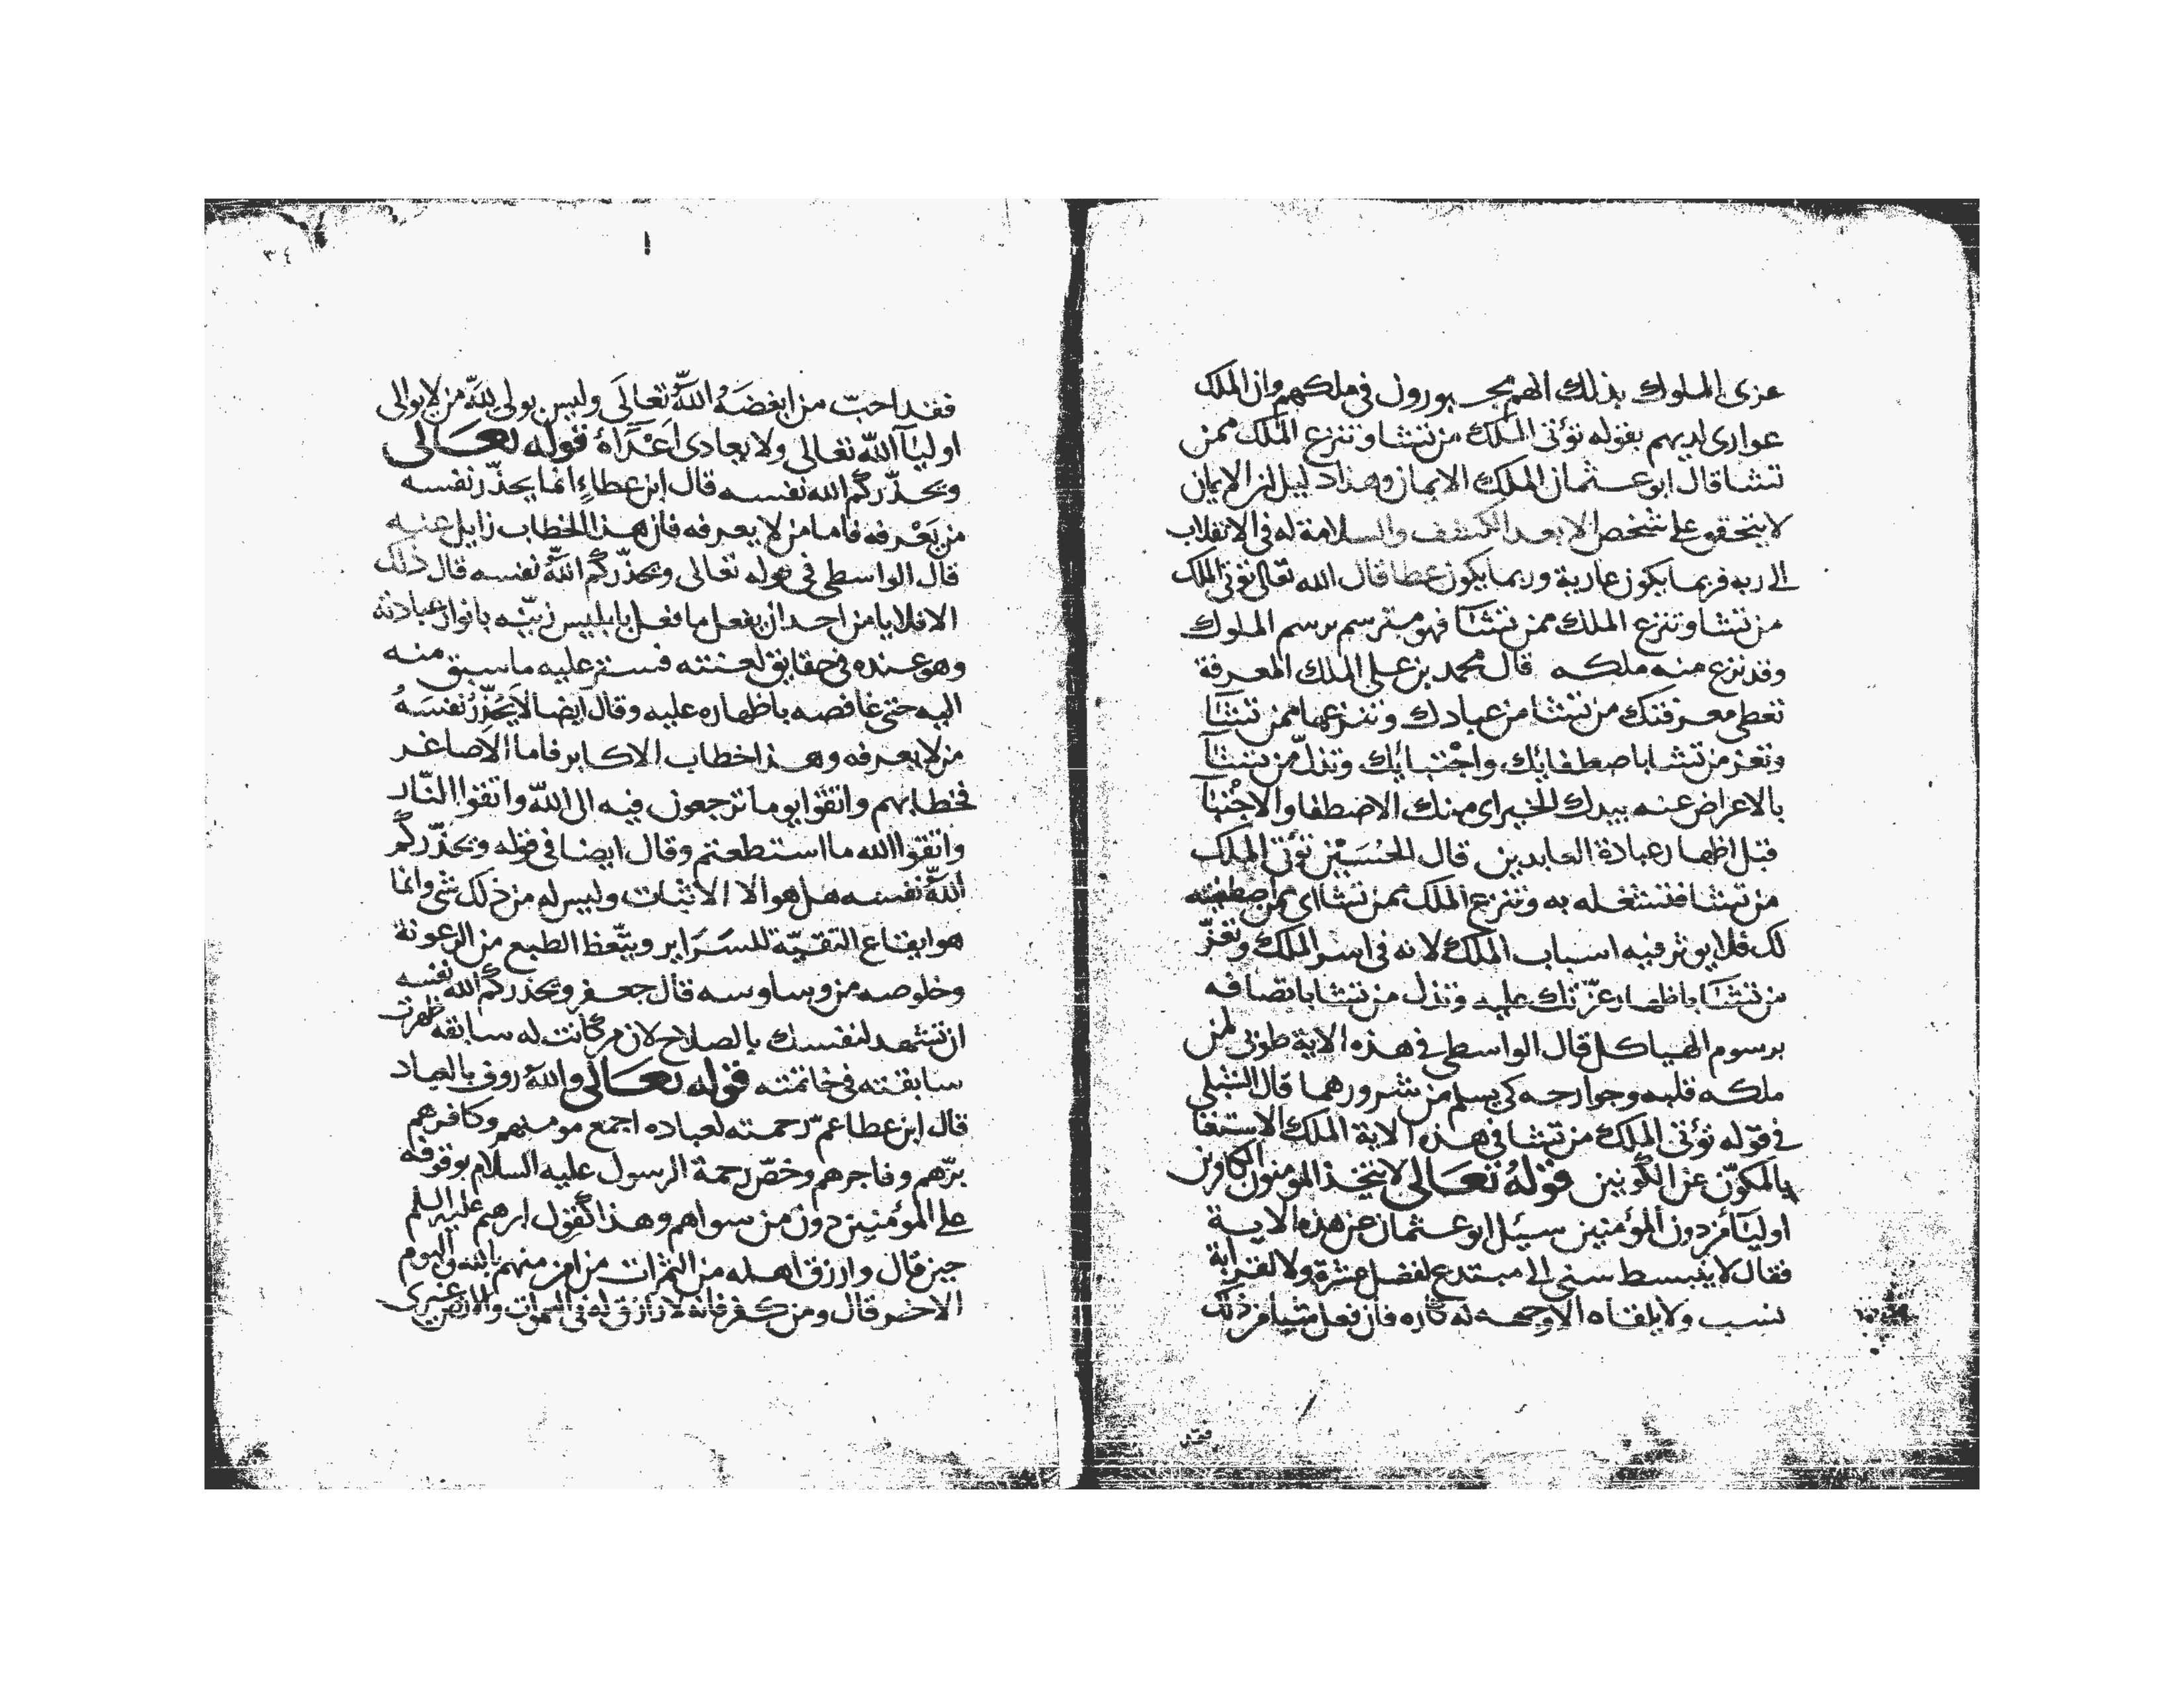 عزى الملوك بذلك انهم مجبورون في ملكهم وان الملك
عوارى لديهم بقوله تؤتى الملك من تشا وتنزع الملك ممن
تشا قال ابو عثمان الملك الايمان وهذا دليل ان الايمان
لا يتحقق على شخص الا بعد الكشف والسلامة له في الانقلاب
الى ربه فربما يكون عارية وربما يكون عطا قال الله تعالى تؤتى الملك
من تشا وتنزع الملك ممن تشآ فهو مترسم برسم الملوك
وقد نزع منه ملكه قال محمد بن على الملك المعرفة
تعطى معرفتك من تشا من عبادك وتنزعها ممن تشآ
وتعز من تشا باصطفائك واجْتبائك وتذلّ من تشآ
بالاعراض عنه بيدك الخير اى منك الاصطفا والاجْتبآ
قبل اظهار عبادة العابدين قال الحُسَيْن تؤتى الملك
من تشا فتشغله به وتنزع الملك ممن تشا اى ممن اصطفيته
لك فلا يوثر فيه اسباب الملك لانه في اسر الملك وتعزّ
من تشآ باظهار عزّتك عليه وتذل من تشا باتصافه
برسوم الهياكل قال الواسطى في هذه الاية طوبى لمن
ملكه قلبه وجوارحه كى يسلم من شرورهما قال الشبلى
في قوله تؤتى الملك من تشا في هذه الاية الملك الاستغنا
بالمكوّن عن الكونين قولهُ تعَالى لا يتخذ المومنون الكافرين
اوليَآ من دون المؤمنين سيَل ابو عثمان عن هذه الاية
فقال لا ينبسط سنى الى مبتدع لفضل عشرة ولا لقرابة
نسب ولا يلقاه الا وجهه له كاره فان فعل شيا من ذلك
٣٤
فقد احبّ من ابغضَهُ اللّه تعالَى وليس يولى للّه من لا يوالى
اوليَآ اللّه تعالى ولا يعادى اَعْدَآهُ قوله تعَالى
ويحذّركم الله نفسه قال ابن عطاءٍ انما يحذّر نفسه
من يَعْرفه فاما من لا يعرفه فان هذا الخطاب زايل عنه
قال الواسطى في قوله تعالى ويحذّركم اللّه نفسه قال ذلك
الا فلا يامن احد ان يفعل ما فعل بابليس زيّنه بانوار عبادته
وهو عنده في حقايق لعنته فستر عليه ما سبق منه
اليه حتى غافصه باظهاره عليه وقال ايضا لا يَحْذَرُ نفسَهُ
من لا يعرفه وهذا خطاب الاكابر فاما الاصاغر
فخطابهم واتقوا يوما ترجعون فيه الى اللّه واتقوا النّار
واتقوا الله ما استطعتم وقال ايضا في قوله ويحذّركم
اللّه نفسه هل هو الا الاثبات وليس له من ذلك شى وانما
هو ايقاع التقيّة للسَرَاير ويتّعظ الطبع من الرعونة
وخلوصه من وساوسه قال جعفر ويحذركم الله نفسه
ان تشهد لنفسك بالصلاح لان من كانت له سابقه ظهرت
سابقته في خاتمته قوله تعَالى واللّه روف بالعباد
قال ابن عطا عمّ رحمته لعباده اجمع مومنهم وكافرهم
برّهم وفاجرهم وخصّ رحمة الرسول عليه السلام بوقوفه
على المؤمنين دون من سواهم وهذا كقول ابرهيم عليه السلم
حين قال وارزق اهله من الثمرات من امن منهم بالله واليوم
الاخر قال ومن كفر فانه لا رازق له في السموات والارض غيرى